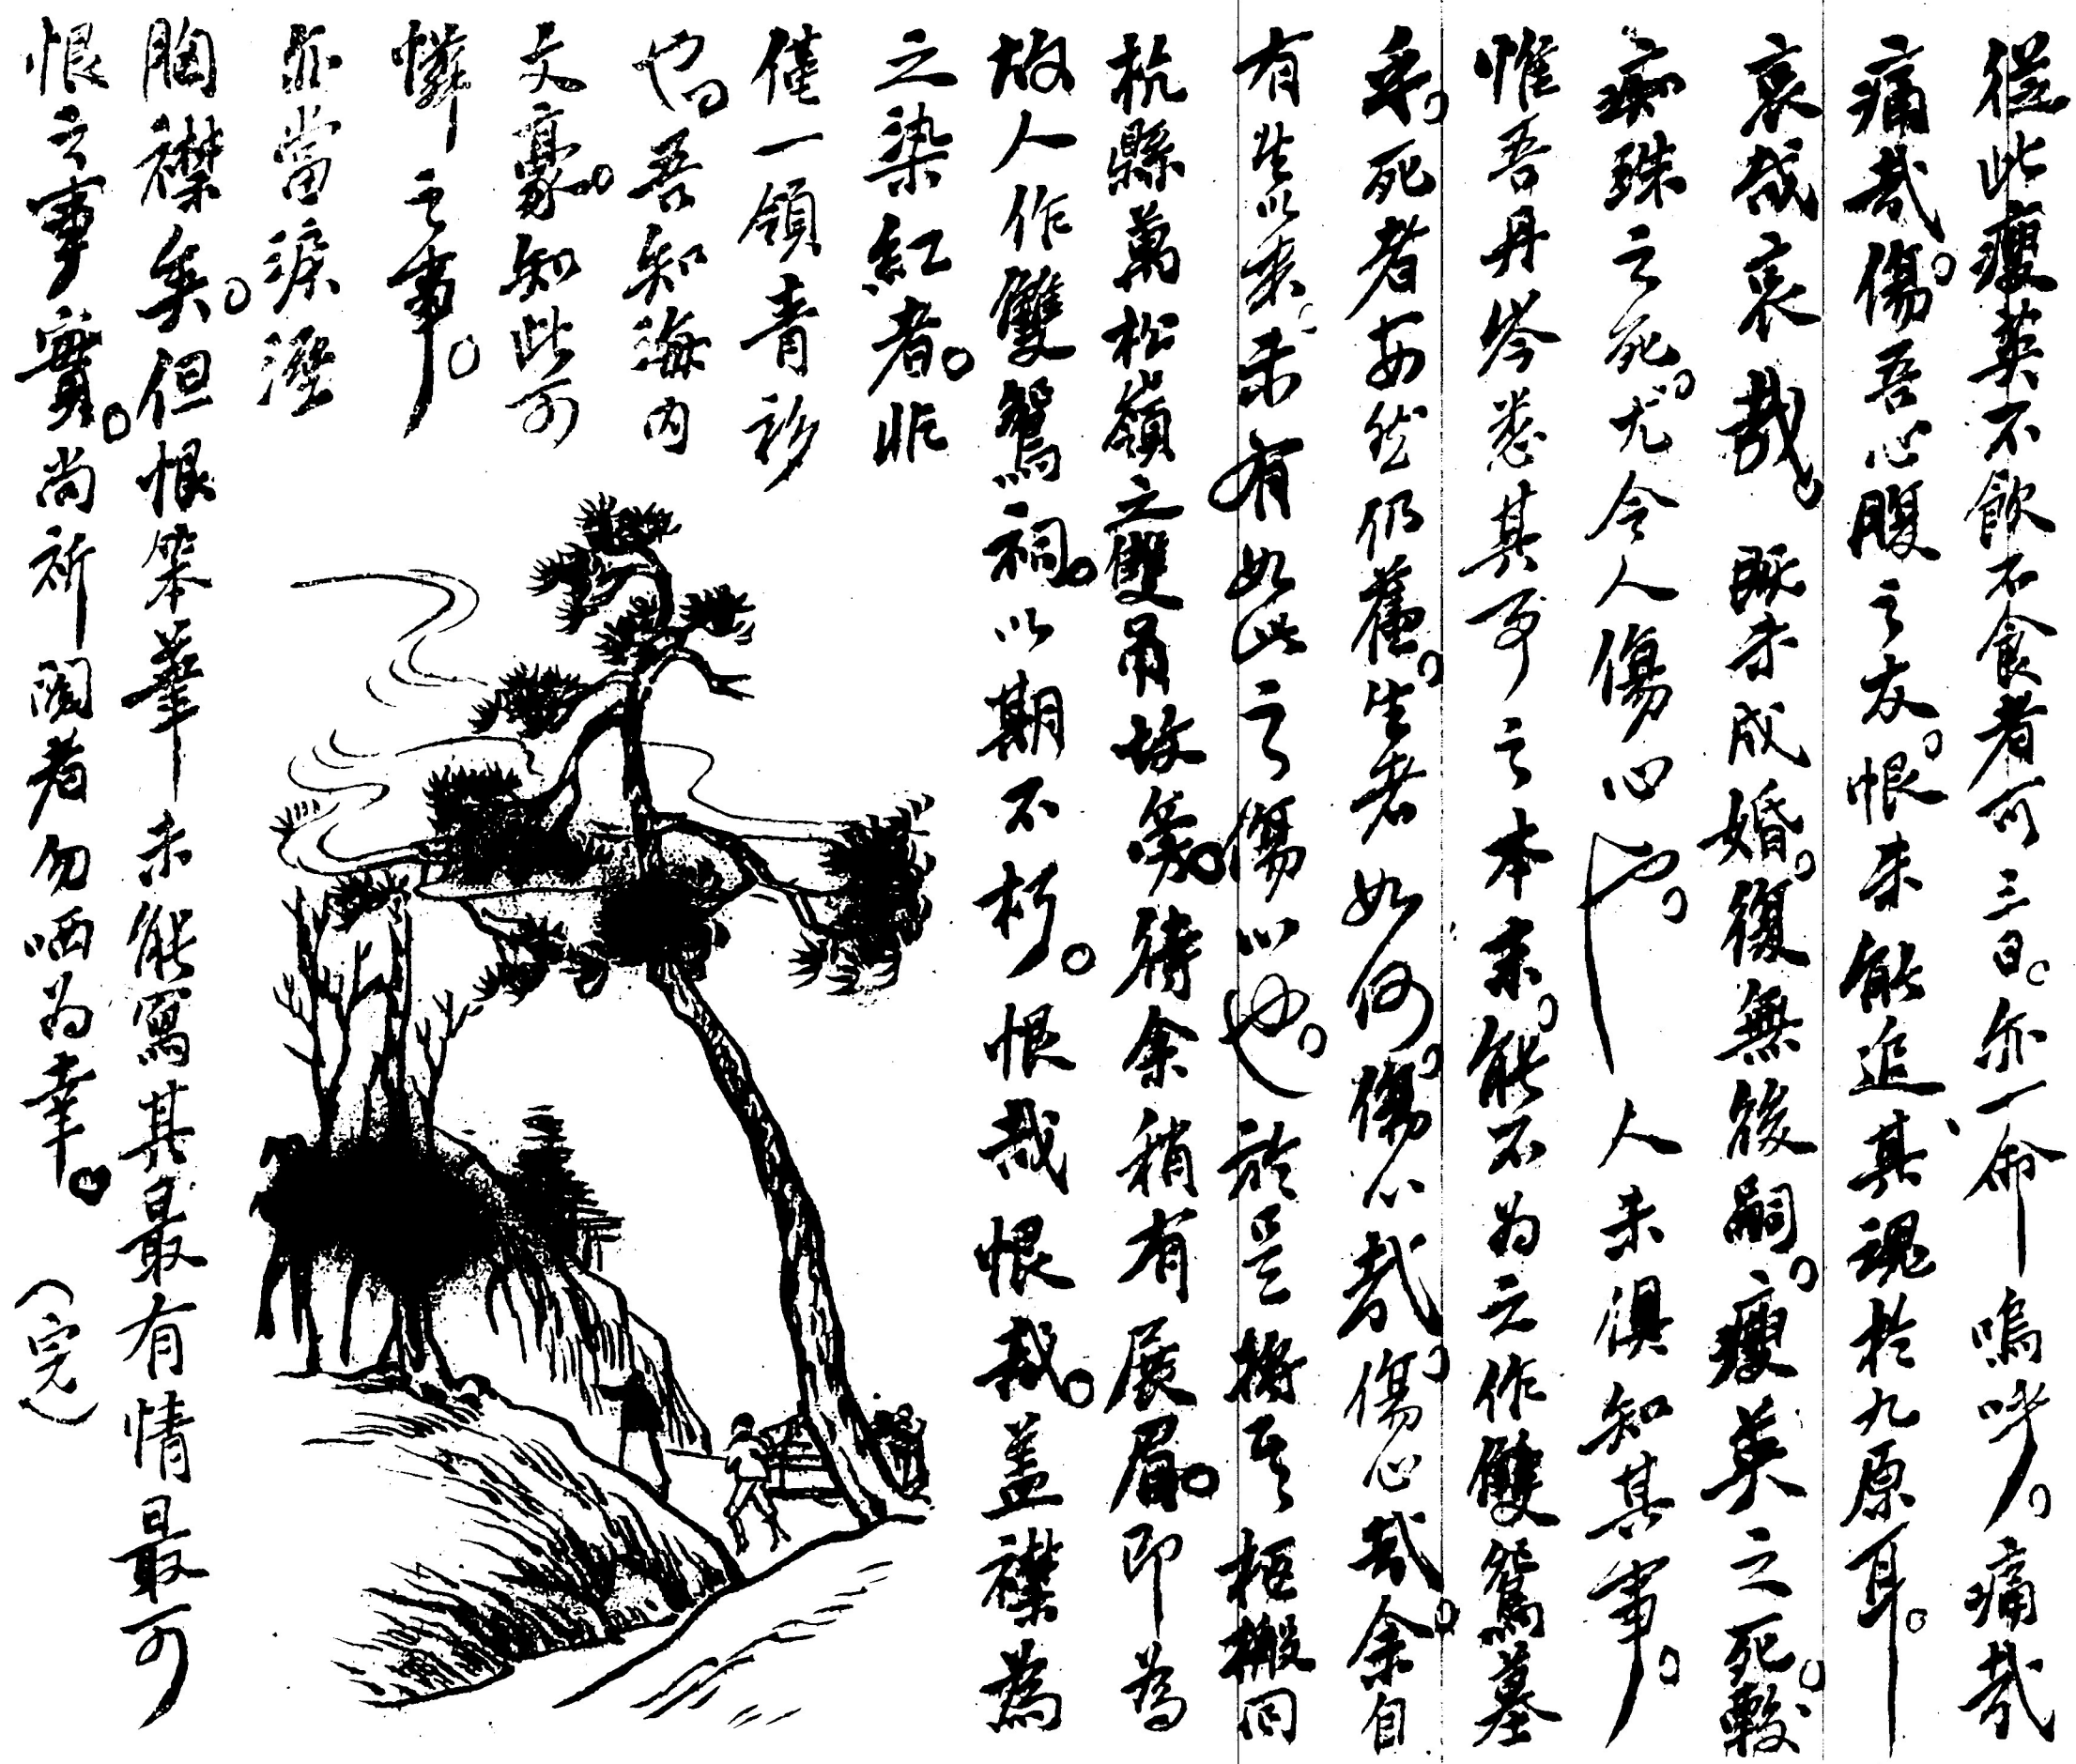 從此瘦英不飲不食者可三日。亦一命嗚呼。痛哉
痛哉。傷吾心腹之友。恨未能追其魂於九原耳。
哀哉哀哉。既未成婚。復無後嗣。瘦英之死。較
痴珠之死。尤令人傷心也。人未俱知其事。
惟吾丹岑悉其事之本末。能不為之作雙鴛墓
乎。死者安然仍舊。生者如何。傷心哉。傷心哉。余自
有生以來。未有如此之傷心也。於是將其柩搬回
杭縣萬松嶺之雙吊故處。待余稍有展眉。即為
故人作雙鴛祠。以期不朽。恨哉恨哉。蓋襟為
之染紅者。非
僅一領青衫
也。吾知海內
文豪。知此可
憐之事。
亦當淚溼
胸襟矣。但恨笨筆未能寫其最有情最可
恨之事實。尚祈閱者勿哂為幸。(完)